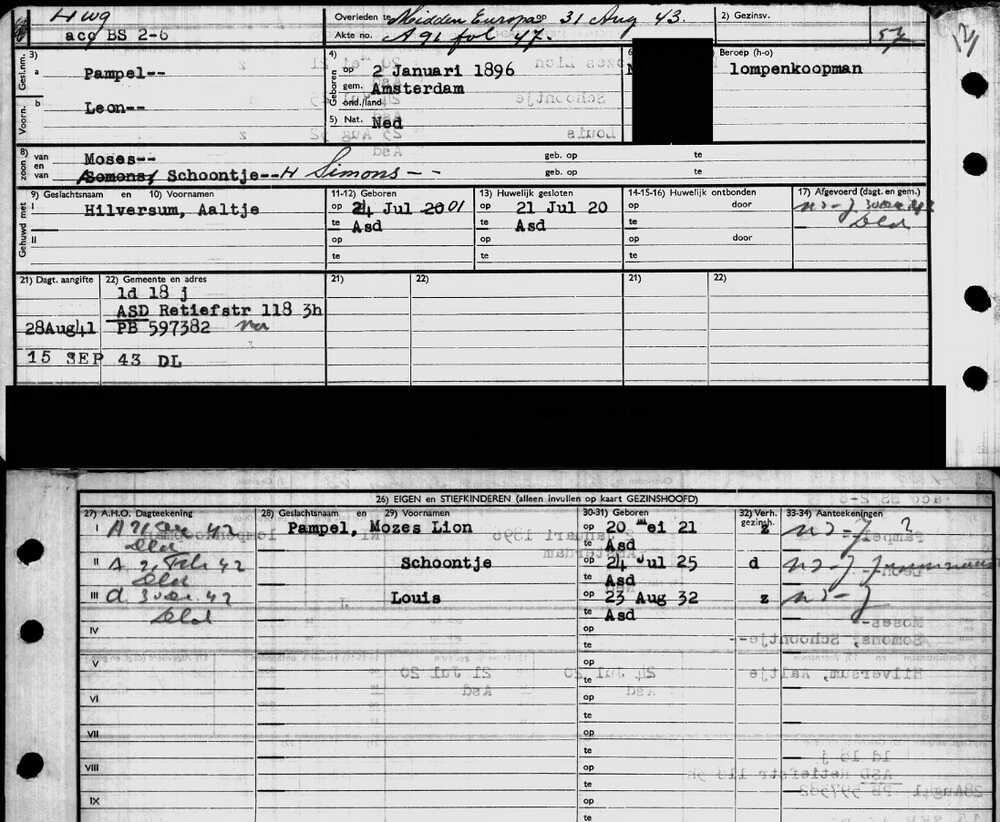 Hwg
acq BS 2-6
Overleden te Midden Europa op 31 Aug 43.
Akte no. A 91 fol 47.
2) Gezinsv.
Gesl.nm. 3)
a Pampel--
Voorn. b Leon--
4) Geboren
op 2 Januari 1896
gem. Amsterdam
ond./land
5) Nat. Ned
6
Beroep (h-o)
lompenkoopman
8) zoon
van Moses-- geb. op te
en
van Somons, Schoontje--H Simons - - geb. op te
Gehuwd met
9) Geslachtsnaam en 10) Voornamen
I Hilversum, Aaltje
II
11-12) Geboren
op 24 Jul 2001
te Asd
op
te
13) Huwelijk gesloten
op 21 Jul 20
te Asd
op
te
14-15-16) Huwelijk ontbonden
op door
te
op door
te
17) Afgevoerd (dagt. en gem.)
21) Dagt. aangifte 22) Gemeente en adres 21) 22) 21) 22)
1d 18 j
ASD Retiefstr 118 3h
28Aug41 PB 597382
15 SEP 43 DL
26) EIGEN en STIEFKINDEREN (alleen invullen op kaart GEZINSHOOFD)
27) A.H.O. Dagteekening 28) Geslachtsnaam en 29) Voornamen 30-31) Geboren 32) Verh. gezinsh. 33-34) Aantekeningen
I Pampel, Mozes Lion op 20 Mei 21 z
te Asd
II Schoontje op 24 Jul 25 d
te Asd
III Louis op 23 Aug 32 z
te Asd
IV op
te
V op
te
VI op
te
VII op
te
VIII op
te
IX op
te